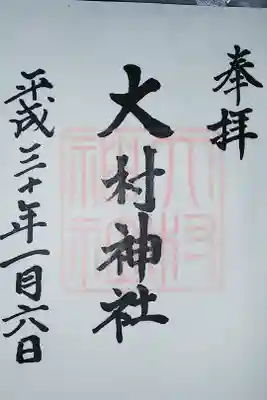 奉拝
大村神社
平成三十年一月六日
大村
神社